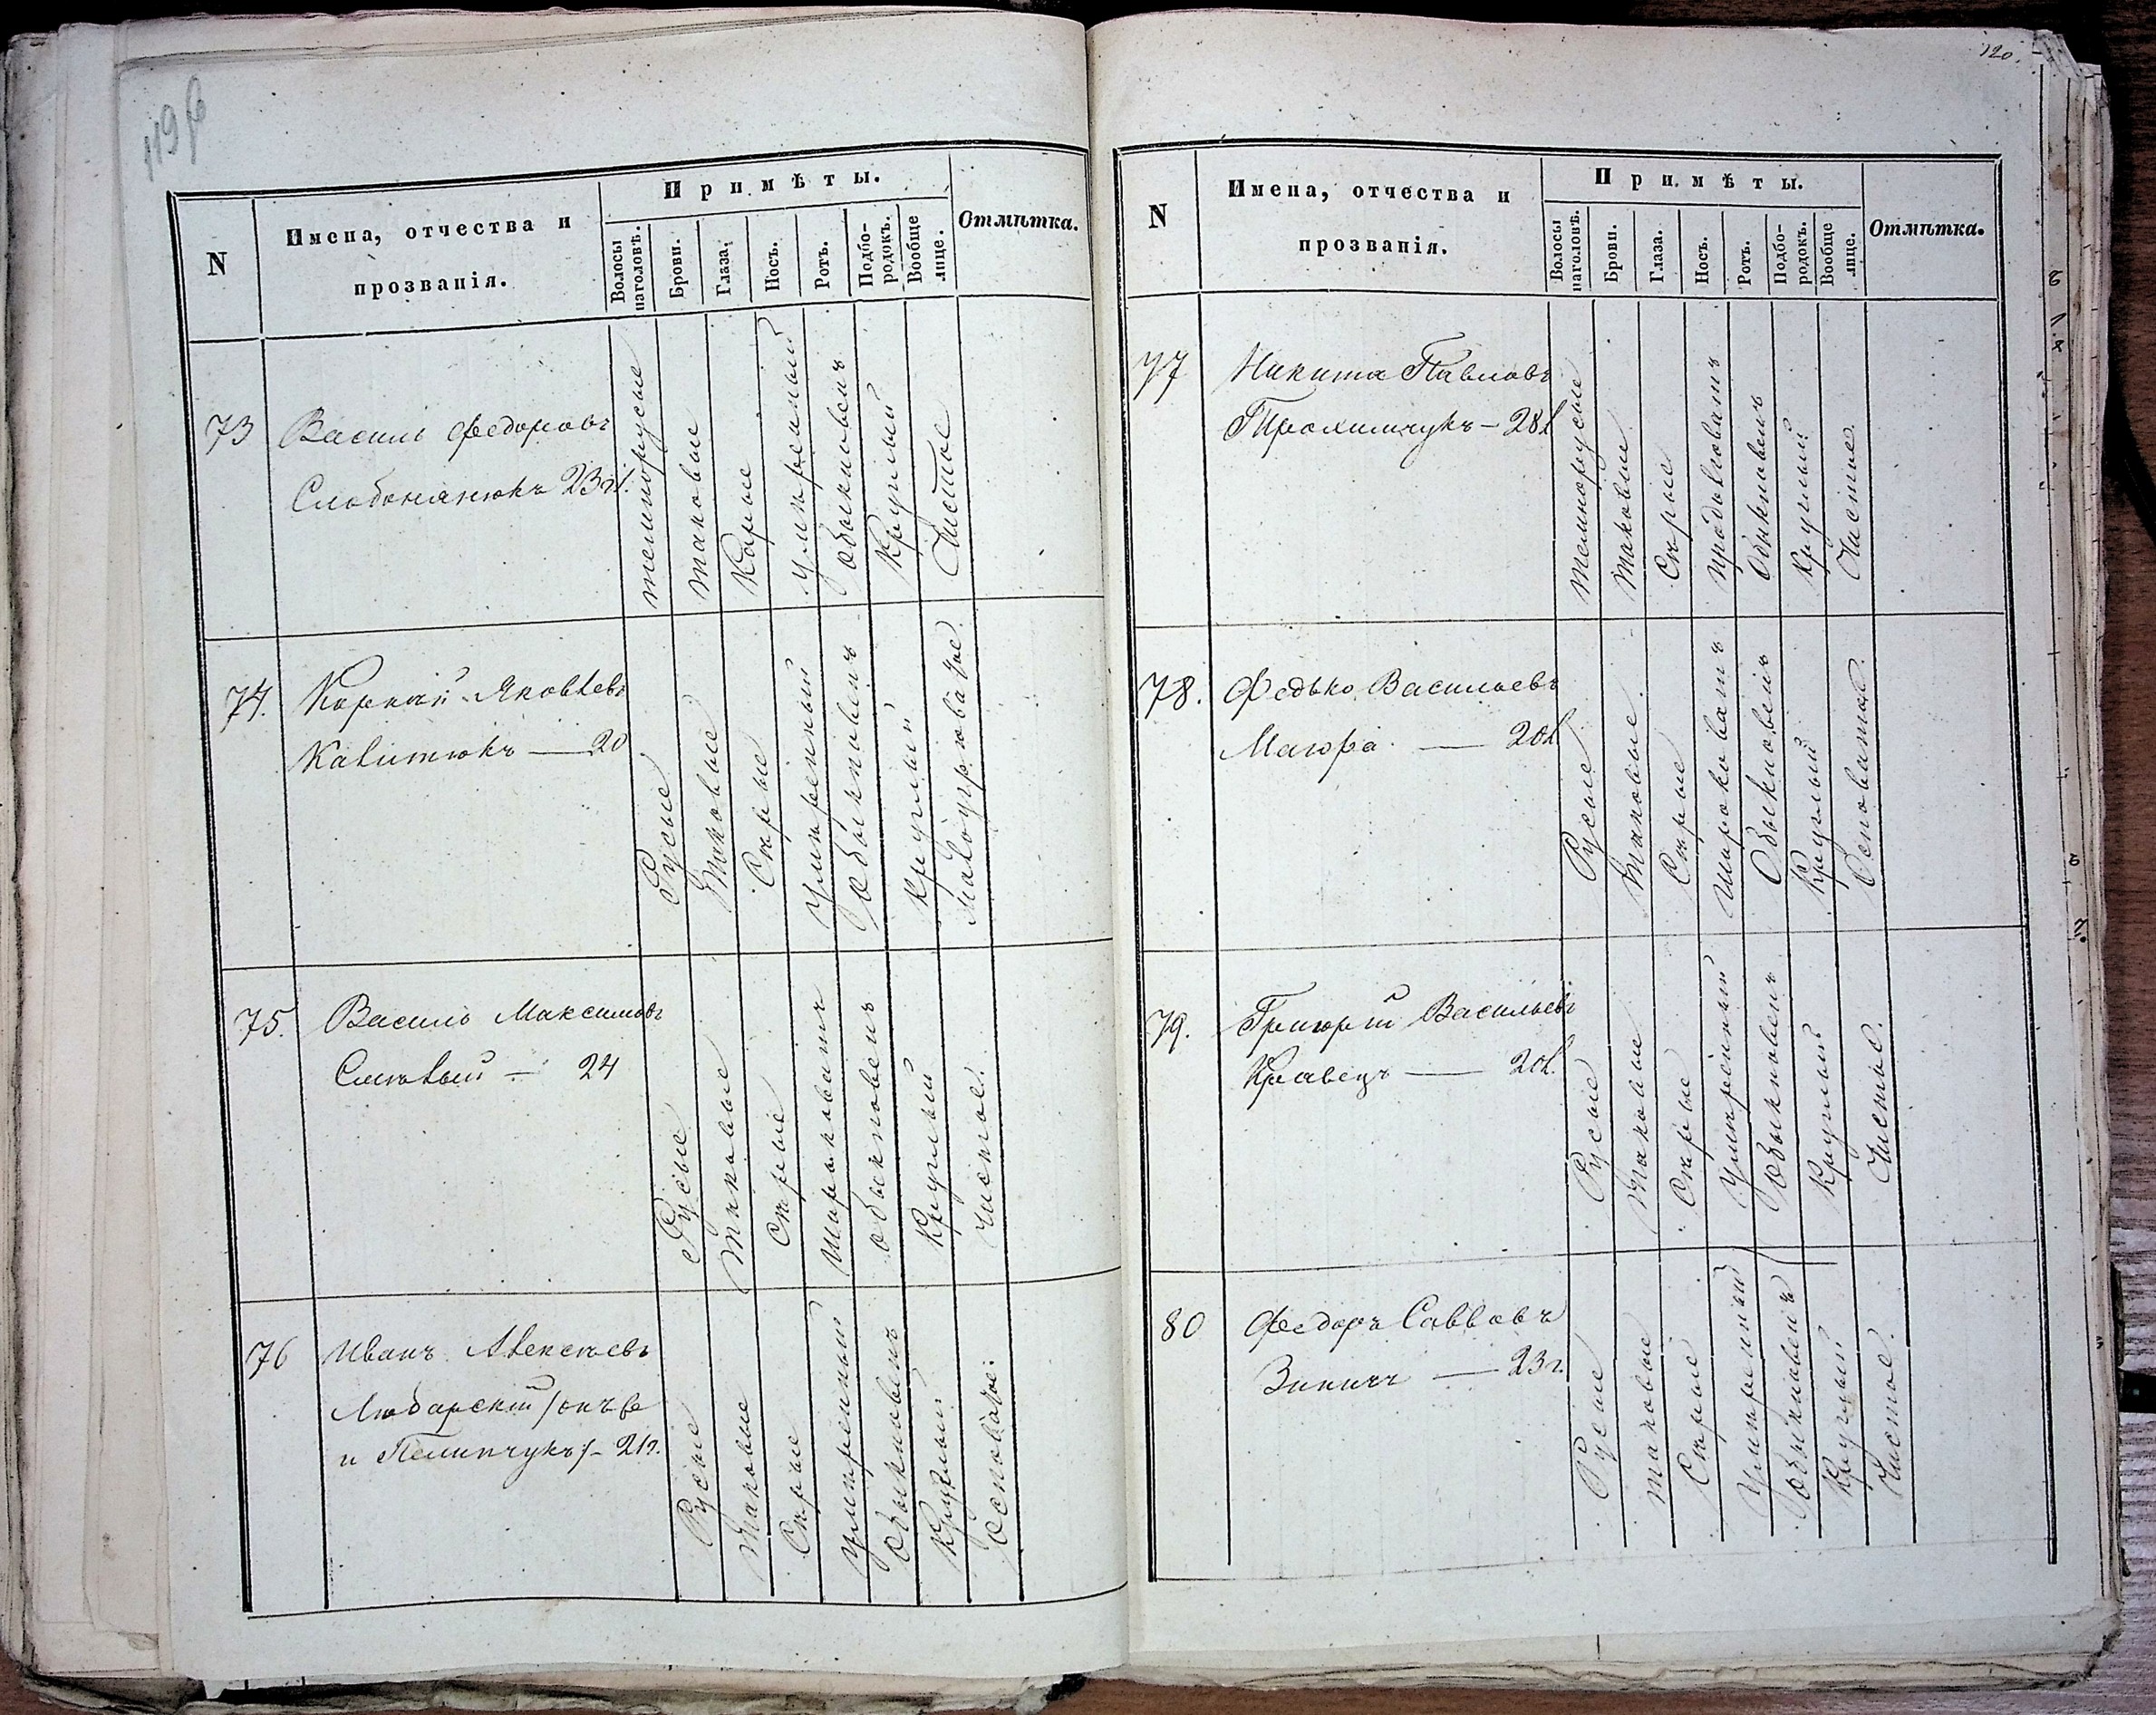 119 об
N
Имена, отчества и
прозванія.
Примѣты.
Волосы
наголовѣ.
Брови.
Глаза.
Носъ.
Ротъ.
Подбо-
родокъ.
Вообще
лице.
Отмѣтка.
73
Василь Федоровъ
Слободянюкъ 23 г.
темнорусые
таковые
Карые
умѣренный
обыкновенъ
Круглый
Чистое
74.
Корнѣй Яковлевъ
Калитюкъ — 20
Русые
Таковые
Сѣрые
Умѣренный
Обыкновенъ
Круглый
Малоугреватое
75.
Василь Максимовъ
— 24
Русые
Таковые
Сѣрые
Шароковатъ
обыкновенъ
Круглый
Чистое.
76
Иванъ Алексѣевъ
Любарскій /онъ же
и Пелипчукъ/ – 21 г.
Русые
Таковые
Сѣрые
Умѣренный
Обыкновенъ
Круглый
Осповатое.
120.
N
Имена, отчества и
прозванія.
Примѣты.
Волосы
наголовѣ.
Брови.
Глаза.
Носъ.
Ротъ.
Подбо-
родокъ.
Вообще
лице.
Отмѣтка.
77
Никита Павловъ
Трохимчукъ – 28 л
Темнорусые
Таковые
Сѣрые
продолговатъ
Обыкновенъ
Круглый
Чистое.
78.
Федько Васильевъ
Маюра — 20 л
Русые
Таковые
Сѣрые
Шароковатъ
Обыкновенъ
Круглый
Осповатое.
79.
Григорій Васильевъ
Кравецъ — 20 л.
Русые
Таковые
Сѣрые
Умѣренный
Обыкновенъ
Круглый
Чистое.
80
Федоръ Саввовъ
Зиничъ — 23 г.
Русые
таковые
Сѣрые
Умѣренный
Обыкновенъ
Круглый
Чистое.